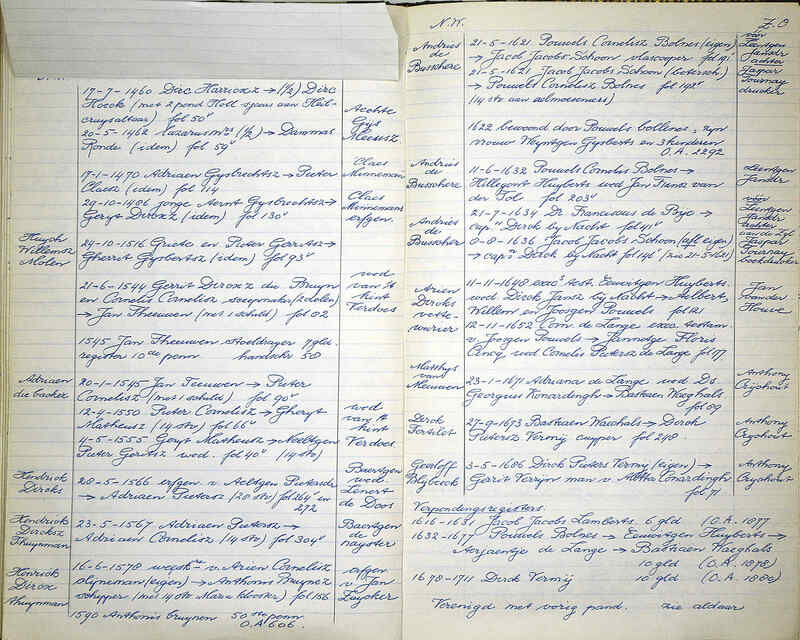 N.W.
17-7-1460 Dirc Harrioxz → (1/2) Dirc
Hoeck (met 2 pond Holl spaers aen Heil-
cruysaltaar) fol 50v
20-5-1462 (1/2) → Dammas
Ronde (idem) fol 59v
Aechte
Gijs
17-1-1470 Adriaen Gysbrechtsz → Pieter
Claesz (idem) fol 114
29-10-1486 jonge Aernt Gysbrechtsz →
Geryt Dircxz (idem) fol 130v
Claes
Minneman
Claes
Minnemans
erfgen.
Huych
Willemsz
Molen
24-10-1516 Griete en Pieter Gerritsz →
Gherrit Gysbertsz (idem) fol 93v
21-6-1544 Gerrit Dircxz die Bruyn
en Cornelis Cornelisz
→ Jan Theeuwen (met 1 schild) fol 82
wed
van 't
hint
Verdoes
1545 Jan Theeuwen stoeldrayer 7 gld.
register 10de penn handschr 50
Adriaen
die backer
20-1-1545 Jan Teeuwen → Pieter
Cornelisz (met 1 schild) fol 90v
12-4-1550 Pieter Cornelisz → Gheryt
Matheusz (14 strs) fol 66v
4-5-1555 Geryt Matheusz → Neeltgen
Pieter Geritsz wed. fol 40v (14 strs)
wed
van 't
hint
Verdoes
Hendrick
Dircks
28-5-1566 erfgen v. Aeltgen Pietersdr
→ Adriaen Pietersz (28 strs) fol 264v en
272
Baertgen
wed
Lenert
de Doos
Hendrick
Dircksz
Thuynman
23-5-1567 Adriaen Pietersz →
Adriaen Cornelisz (14 strs) fol 304v
Baertgen
de
nayster
Henrick
Dircx
thuynman
16-6-1578 v. Arien Cornelisz
slyneman (eigen) → Anthonis Bruynsz
schipper (met 14 strs Maria klooster) fol 156
erfgen
v. Jan
Zuycker
1590 Anthonis bruynen 50ste penn
O.A 606.
N.W. Z.O
Andries
de
Busschere
21-5-1621 Pouwels Cornelisz Bolnes (eigen)
→ Jacob Jacobs Schoon vlascooper fol 191
21-5-1621 Jacob Jacobs Schoon (botersch)
→ Pouwels Cornelisz Bolnes fol 142v
(14 strs aen aelmoeseniers)
vóór
Leentgen
Jansdr
achter
Jaspar
Tournay
drucker
1622 bewoond door Pouwels bollenes, zyn
vrouw Weyntgen Gysberts en 3 kinderen
O.A. 2292
Andries
de
Busschere
11-6-1632 Pouwels Cornelis Bolnes →
Hillegont Huyberts wed Jan Fransz van
der Tol fol 203v
Leentgen
Jansdr
Andries
de
Busscher
21-7-1634 Dr Franciscus de Baye →
capn Dirck by Nacht fol 41v
0-0-1636 Jacob Jacobs Schoon (afk eigen)
→ capn Dirck by Nacht fol 141v (zie 21-5-1621)
vóór
Leentgen
Jansdr
achter
Jaspar
Tournay
boeckdrucker
Arien
Dircks
vette-
warier
11-11-1648 test. Eeuwitgen Huyberts
wed Dirck Jansz by Nacht → Aelbert,
Willem en Joosgen Pouwels fol 121
12-11-1652 Corn de Lange exec. testam.
v. Joosgen Pouwels → Jannetge Floris
wed Cornelis Pietersz de Lange fol 77
Jan
van der
Houve
Matthys
van
Meuwen
23-1-1671 Adriana de Lange wed Ds.
Georgius Konardingh → Bastiaen Waeghals
fol 89
Anthony
Cryohout
Dirck
Fortilet
27-9-1673 Bastiaen Waeghals → Dirck
Pietersz Vermij cuyper fol 248
Anthony
Cryohout
Geerloff
Blybeeck
3-5-1686 Dirck Pieters Vermy (eigen) →
Gerrit Verzijn man v. Aletta Conardingh
fol 71
Anthony
Cryohout
Verpondingsregisters.
1616-1631 Jacob Jacobs Lamberts 6 gld (O.A. 1877
1632-1677 Pouwels Bolnes → Eeuwitgen Huyberts →
Aerjaentje de Lange → Bastiaen Waeghals
10 gld (O.A. 1878)
1678-1711 Dirck Vermij 10 gld (O.A. 1880)
Verenigd met vorig pand. zie aldaar